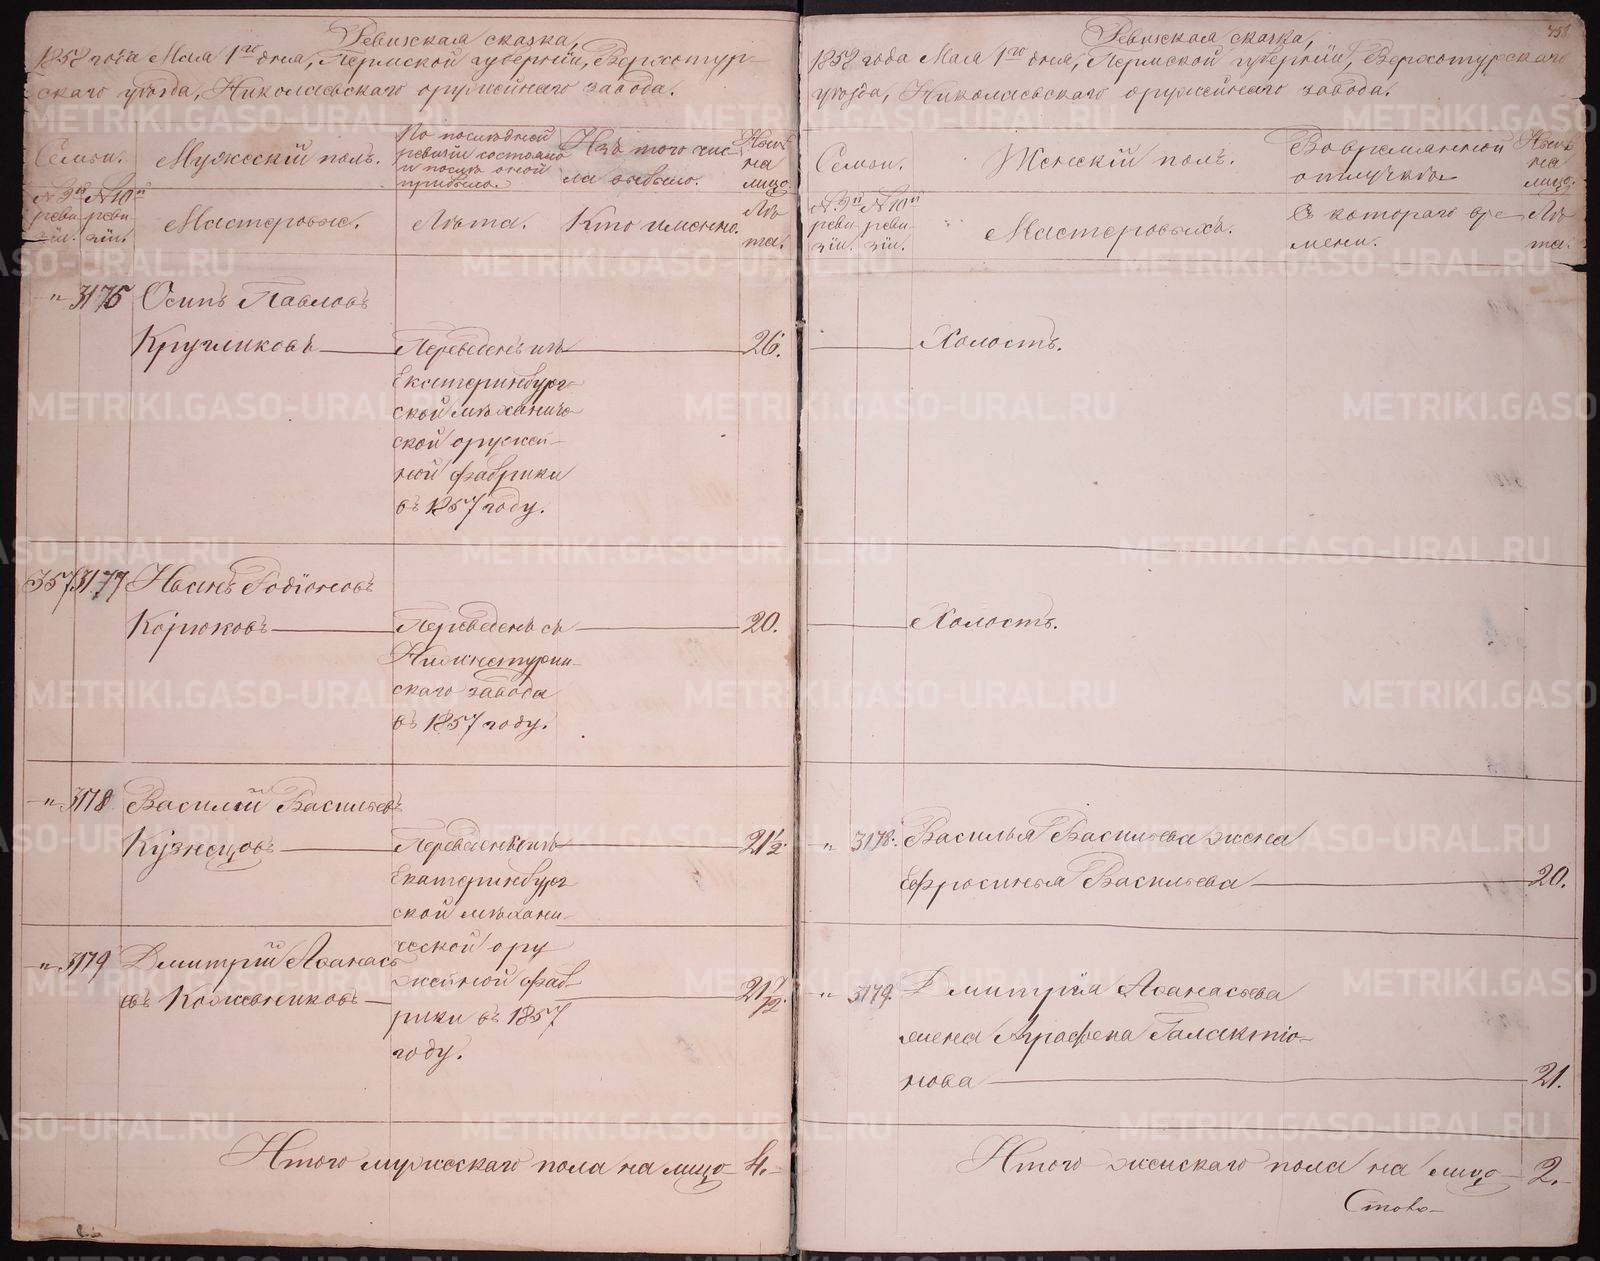 Ревизская сказка,
1858 года Мая 1го дня, Пермской губернiи, Верхотур-
скаго уѣзда, Николаевскаго оружейнаго завода.
Семьи.
Мужескiй полъ.
По послѣдней
ревизiи состояло
и послѣ оной
прибыло.
Изъ того чис-
ла выбыло.
Нынѣ
на
лицо.
№ 9й
реви-
зiи.
№ 10й
реви-
зiи.
Мастеровые.
Лѣта.
Кто именно.
Лѣ
та.
" 3176 Осипъ Павловъ
Кругликовъ Переведенъ изъ 26.
Екатеринбург-
ской механиче
ской оружей-
ной фабрики
въ 1857 году.
357 3177 Иванъ Родiоновъ
Корюковъ Переведенъ съ 20.
Нижнетурин-
скаго завода
въ 1857 году.
" 3178 Василiй Васильевъ
Кузнецовъ Переведенъ изъ 21 1/2
Екатеринбург
ской механи-
ческой ору
жейной фаб
рики въ 1857
году.
" 3179 Дмитрiй Афанась
евъ Кожевниковъ 21 7/12
Итого мужескаго пола на лицо 4.
758
Ревизская сказка,
1858 года Мая 1го дня, Пермской губернiи, Верхотурскаго
уѣзда, Николаевскаго оружейнаго завода.
Семьи.
Женскiй полъ.
Во временной
отлучкѣ
Нынѣ
на
лицо.
№ 9й
реви-
зiи.
№ 10й
реви-
зiи.
Мастеровыхъ.
Съ котораго вре-
мени.
Лѣ
та.
Холостъ.
Холостъ.
" 3178. Василья Васильева жена
Ефросинья Васильева 20.
" 3179. Дмитрiя Афанасьева
жена Аграфена Галактiо-
нова 21.
Итого женскаго пола на лицо 2.
METRIKI.GASO-URAL.RU